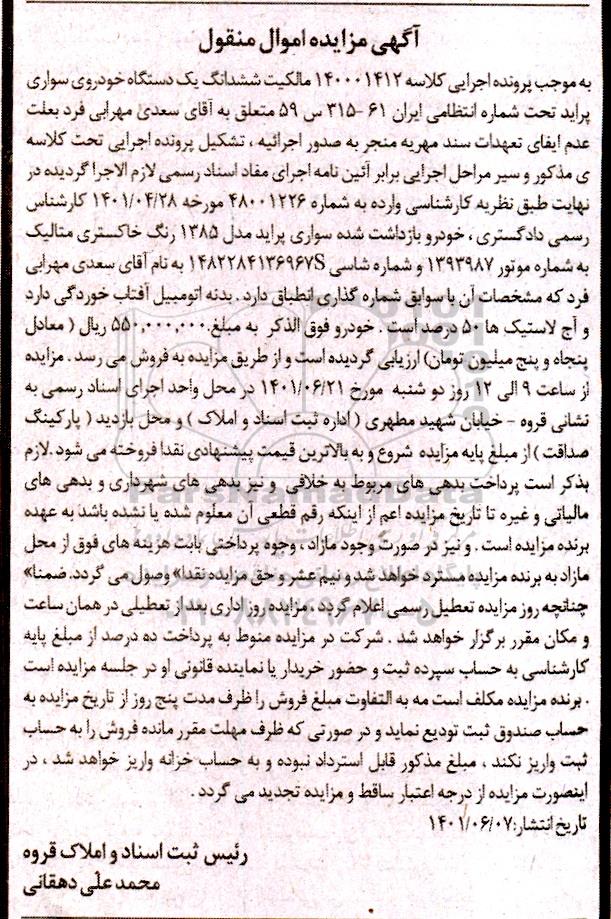 آگهی مزایده اموال منقول
به موجب پرونده اجرایی کلاسه ۱۴۰۰۰۱۴۱۲ مالکیت ششدانگ یک دستگاه خودروی سواری
پراید تحت شماره انتظامی ایران ۶۱ -۳۱۵ س ۵۹ متعلق به آقای سعدی مهرابی فرد بعلت
عدم ایفای تعهدات سند مهریه منجر به صدور اجرائیه ، تشکیل پرونده اجرایی تحت کلاسه
ی مذکور و سیر مراحل اجرایی برابر آئین نامه اجرای مفاد اسناد رسمی لازم الاجرا گردیده در
نهایت طبق نظریه کارشناسی وارده به شماره ۴۸۰۰۱۲۲۶ مورخه ۱۴۰۱/۰۴/۲۸ کارشناس
رسمی دادگستری ، خودرو بازداشت شده سواری پراید مدل ۱۳۸۵ رنگ خاکستری متالیک
به شماره موتور ۱۳۹۳۹۸۷ و شماره شاسی ۱۴۸۲۲۸۴۱۳۶۹۶۷S به نام آقای سعدی مهرابی
فرد که مشخصات آن با سوابق شماره گذاری انطباق دارد . بدنه اتومبیل آفتاب خوردگی دارد
و آج لاستیک ها ۵۰ درصد است . خودرو فوق الذکر به مبلغ ۵۵۰,۰۰۰,۰۰۰ ریال ( معادل
پنجاه و پنج میلیون تومان) ارزیابی گردیده است و از طریق مزایده به فروش می رسد . مزایده
از ساعت ۹ الی ۱۲ روز دو شنبه مورخ ۱۴۰۱/۰۶/۲۱ در محل واحد اجرای اسناد رسمی به
نشانی قروه - خیابان شهید مطهری ( اداره ثبت اسناد و املاک ) و محل بازدید ( پارکینگ
صداقت ) از مبلغ پایه مزایده شروع و به بالاترین قیمت پیشنهادی نقدا فروخته می شود .لازم
بذکر است پرداخت بدهی های مربوط به خلافی و نیز بدهی های شهرداری و بدهی های
مالیاتی و غیره تا تاریخ مزایده اعم از اینکه رقم قطعی آن معلوم شده یا نشده باشد به عهده
برنده مزایده است . و نیز در صورت وجود مازاد ، وجوه پرداختی بابت هزینه های فوق از محل
مازاد به برنده مزایده مسترد خواهد شد و نیم عشر و حق مزایده نقدا» وصول می گردد. ضمنا»
چنانچه روز مزایده تعطیل رسمی اعلام گردد ، مزایده روز اداری بعد از تعطیلی در همان ساعت
و مکان مقرر برگزار خواهد شد . شرکت در مزایده منوط به پرداخت ده درصد از مبلغ پایه
کارشناسی به حساب سپرده ثبت و حضور خریدار یا نماینده قانونی او در جلسه مزایده است
. برنده مزایده مکلف است مه به التفاوت مبلغ فروش را ظرف مدت پنج روز از تاریخ مزایده به
حساب صندوق ثبت تودیع نماید و در صورتی که ظرف مهلت مقرر مانده فروش را به حساب
ثبت واریز نکند ، مبلغ مذکور قابل استرداد نبوده و به حساب خزانه واریز خواهد شد ، در
اینصورت مزایده از درجه اعتبار ساقط و مزایده تجدید می گردد .
تاریخ انتشار:۱۴۰۱/۰۶/۰۷
رئیس ثبت اسناد و املاک قروه
محمد علی دهقانی